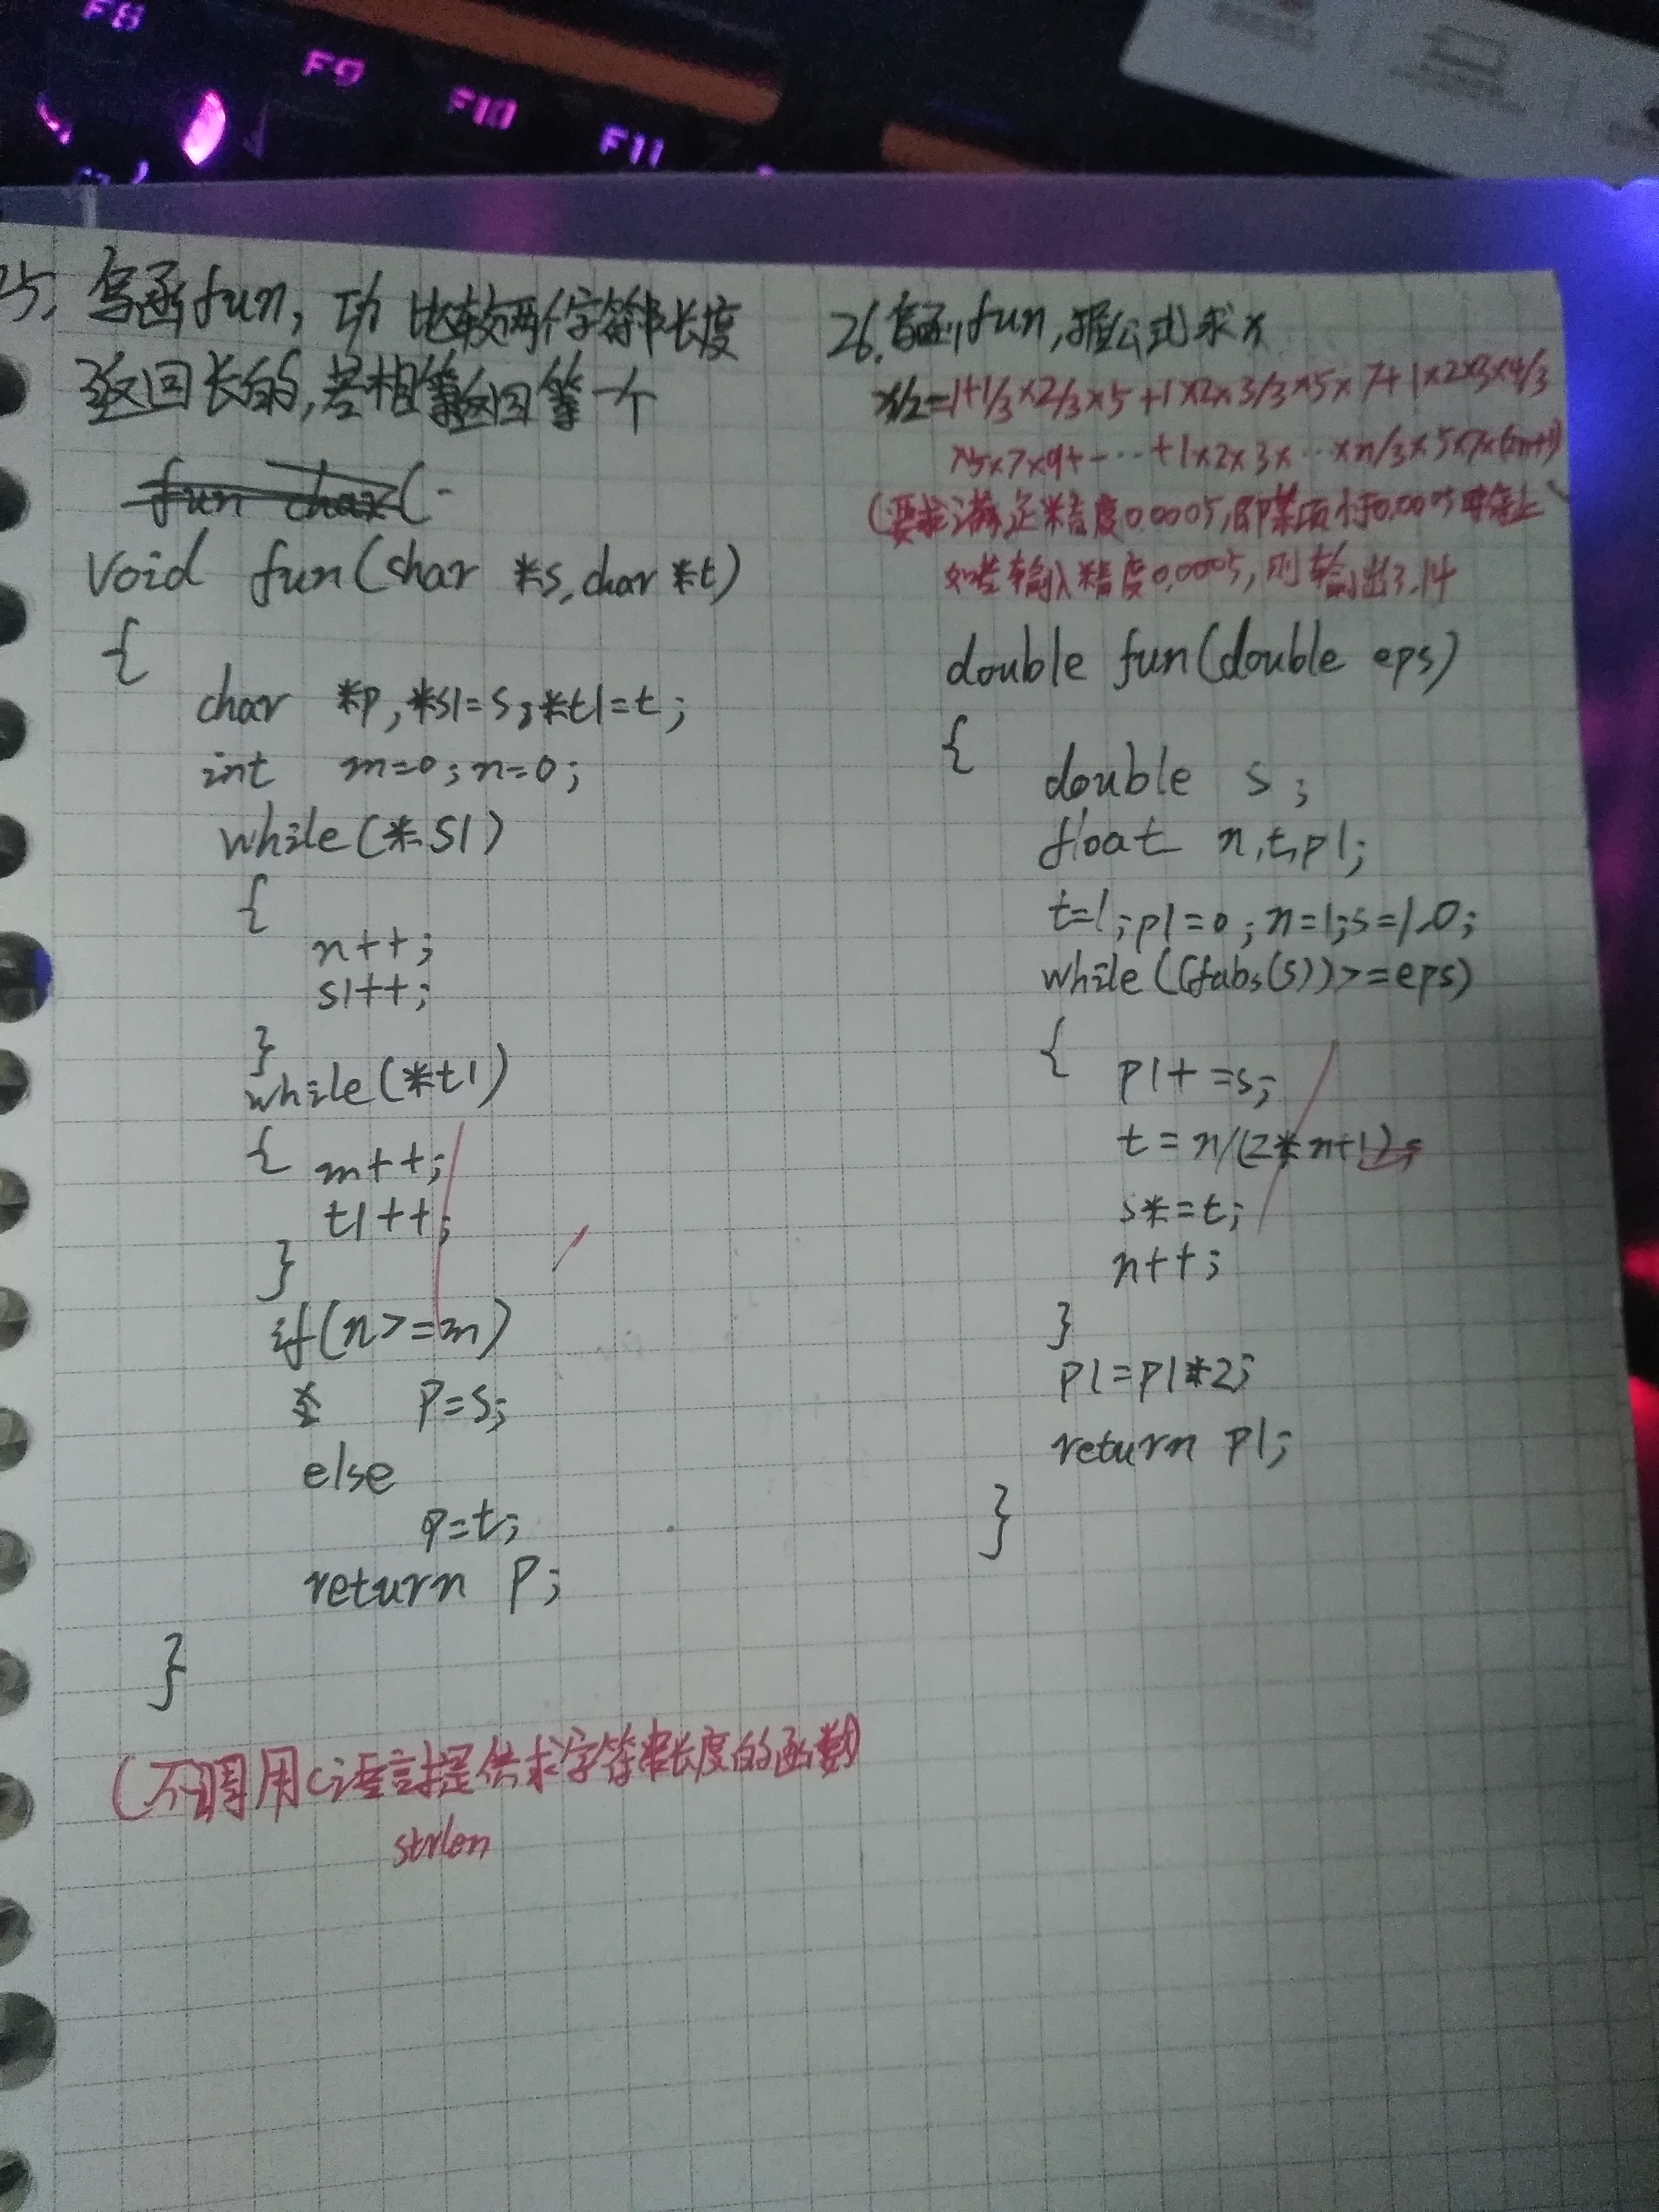 F8
F9
F10
F11
25. 写函fun, 功 比较两个字符串长度
返回长的,若相等返回第一个
fun char(
void fun(char *s,char *t)
{
char *p,*s1=s,*t1=t;
int m=0;n=0;
while(*s1)
{
n++;
s1++;
}
while(*t1)
{ m++;
t1++;
}
if(n>=m)
p=s;
else
p=t;
return p;
}
(不调用C语言提供求字符串长度的函数)
strlen
26.写函fun,据公式求π
π/2=1+1/3×2/3×5+1×2×3/3×5×7+1×2×3×4/3
×5×7×9+--···+1×2×3×···×n/3×5×7×(2n+1)
(要求满足精度0.0005,即某项小于0.0005时停止
如若输入精度0.0005,则输出3.14
double fun(double eps)
{ double s;
float n,t,p1;
t=1;p1=0;n=1;s=1.0;
while((fabs(s))>=eps)
{ p1+=s;
t=n/(2*n+1);
s*=t;
n++;
}
p1=p1*2;
return p1;
}